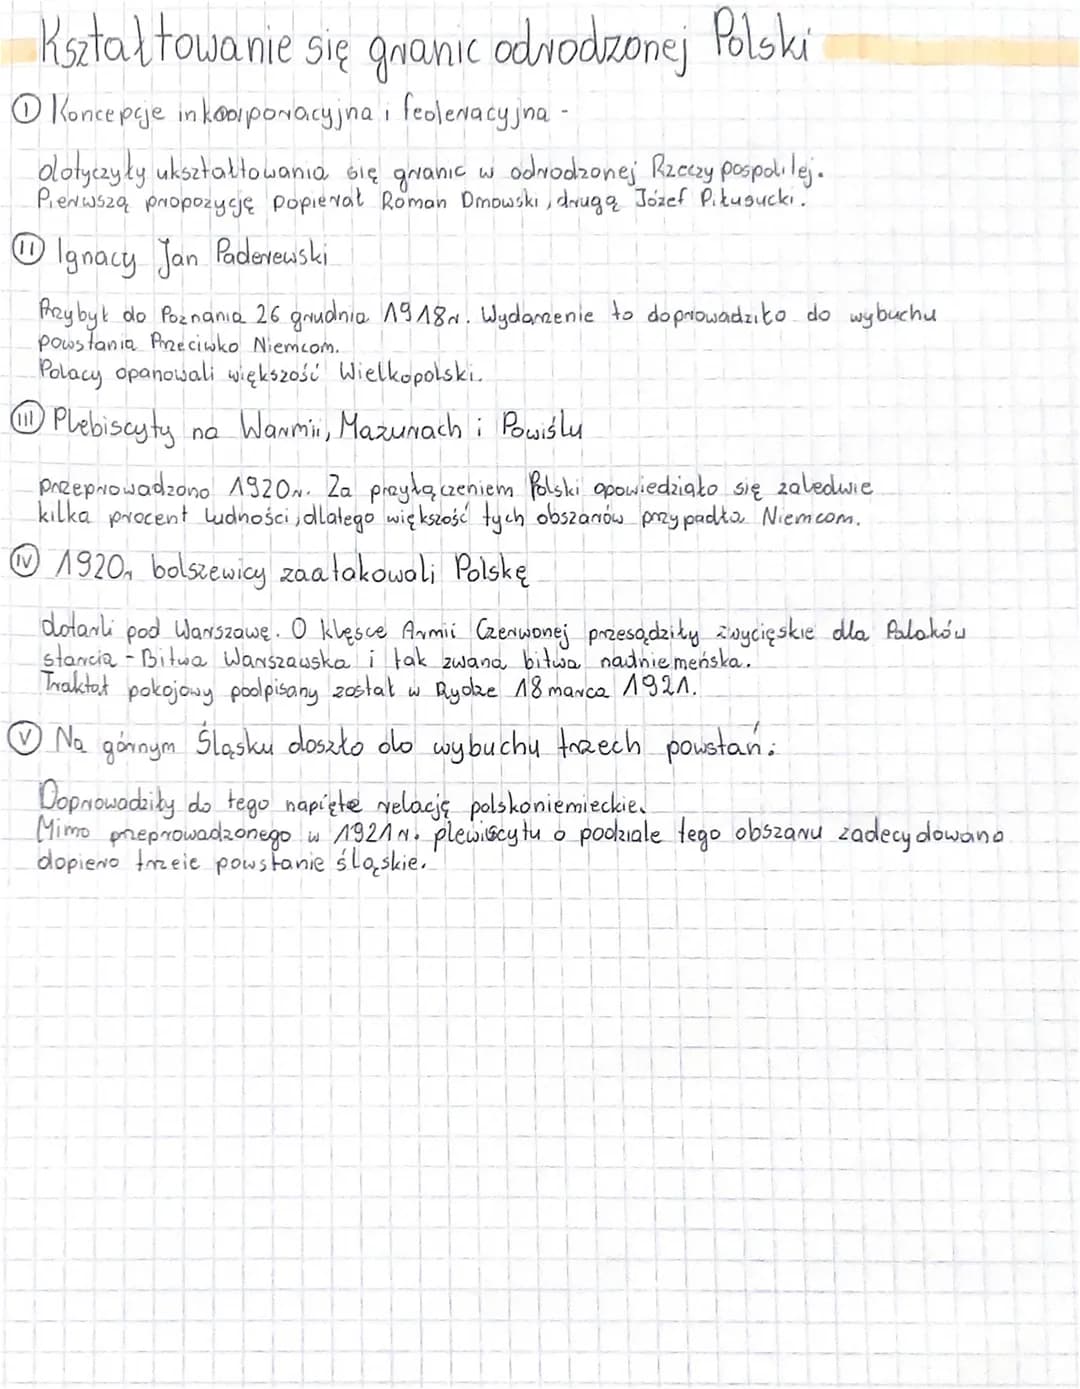 Kształtowanie się granic odrodzonej Polski
I Koncepcje inkoorporacyjna i federacyjna -
dotyczyły ukształtowania się granic w odrodzonej Rzeczy pospolilej.
Pierwszą propozycję popierał Roman Dmowski, drugą Józef Piłusucki.
II Ignacy Jan Paderewski
Przybył do Poznania 26 grudnia 1918r. Wydarzenie to doprowadziło do wybuchu
powstania Przeciwko Niemcom.
Polacy opanowali większość Wielkopolski.
III Plebiscyty na Warmii, Mazurach i Powiślu
przeprowadzono 1920r. Za przyłączeniem Polski opowiedziało się zaledwie
kilka procent ludności, dlatego większość tych obszarów przypadła Niemcom.
IV 1920r bolszewicy zaatakowali Polskę
dotarli pod Warszawę. O klęsce Armii Czerwonej przesądziły zwycięskie dla Polaków
starcia - Bitwa Warszawska i tak zwana bitwa nadniemeńska.
Traktat pokojowy podpisany został w Rydze 18 marca 1921.
V Na górnym Śląsku doszło do wybuchu trzech powstań:
Doprowadziły do tego napięte relację polskoniemieckie.
Mimo przeprowadzonego w 1921r. plewiscytu o podziale tego obszaru zadecydowano
dopiero trzeie powstanie śląskie.